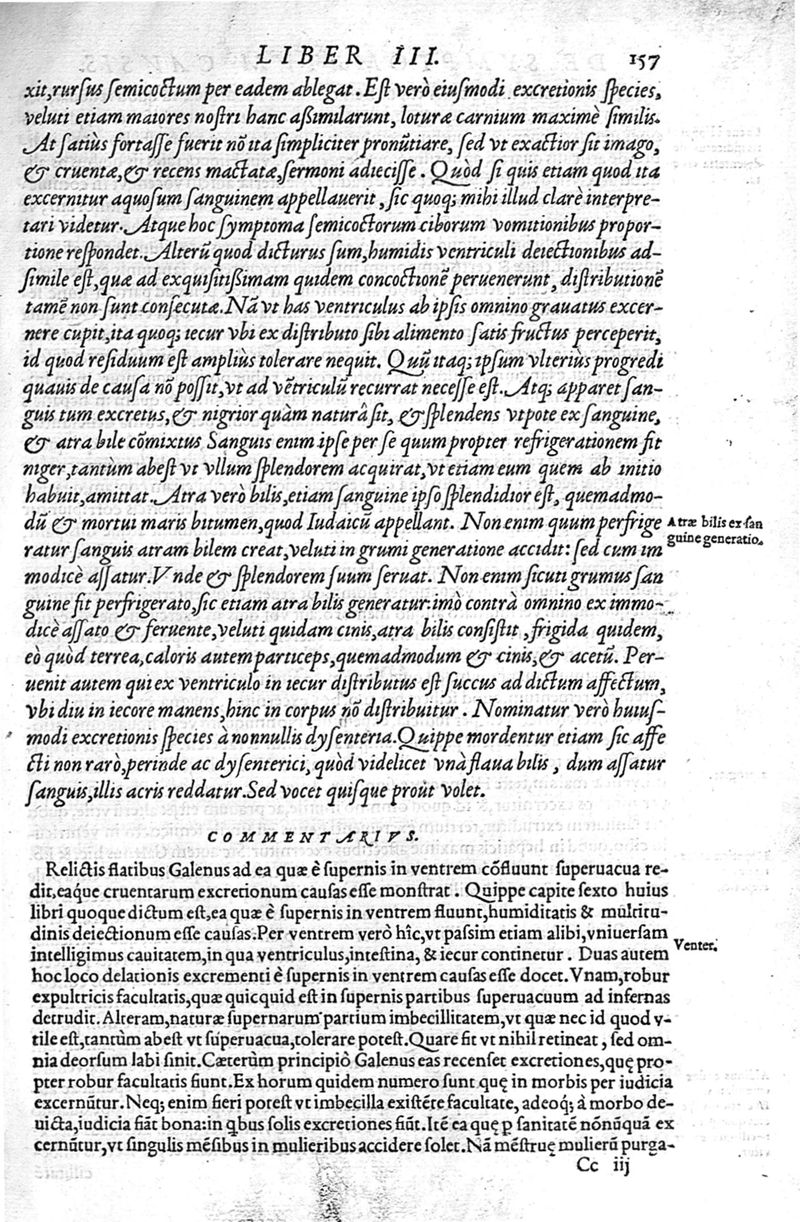 LIBER III. 157
xit, rursus semicoctum per eadem ablegat. Est verò eiusmodi excretionis species,
veluti etiam maiores nostri hanc aßimilarunt, loturæ carnium maximè similis.
At satiùs fortasse fuerit nō ita simpliciter pronūtiare, sed vt exactior sit imago,
& cruentæ, & recens mactatæ, sermoni adiecisse. Quòd si quis etiam quod ita
excernitur aquosum sanguinem appellauerit, sic quoq; mihi illud clarè interpre-
tari videtur. Atque hoc symptoma semicoctorum ciborum vomitionibus propor-
tione respondet. Alterū quod dicturus sum, humidis ventriculi deiectionibus ad-
simile est, quæ ad exquisitißimam quidem concoctionē peruenerunt, distributionē
tamē non sunt consecutæ. Nā vt has ventriculus ab ipsis omnino grauatus excer-
nere cupit, ita quoq; iecur vbi ex distributo sibi alimento satis fructus perceperit,
id quod residuum est ampliùs tolerare nequit. Quū itaq; ipsum vlteriùs progredi
quauis de causa nō possit, vt ad vētriculū recurrat necesse est. Atq; apparet san-
guis tum excretus, & nigrior quàm naturâ sit, & splendens vtpote ex sanguine,
& atra bile cōmixtus Sanguis enim ipse per se quum propter refrigerationem fit
niger, tantum abest vt vllum splendorem acquirat, vt etiam eum quem ab initio
habuit, amittat. Atra verò bilis, etiam sanguine ipso splendidior est, quemadmo-
dū & mortui maris bitumen, quod Iudaicū appellant. Non enim quum perfrige
ratur sanguis atram bilem creat, veluti in grumi generatione accidit: sed cum im
modicè assatur. Vnde & splendorem suum seruat. Non enim sicuti grumus san
guine fit perfrigerato, sic etiam atra bilis generatur: imò contrà omnino ex immo-
dicè assato & feruente, veluti quidam cinis, atra bilis consistit, frigida quidem,
eò quòd terrea, caloris autem particeps, quemadmodum & cinis, & acetū. Per-
uenit autem qui ex ventriculo in iecur distributus est succus ad dictum affectum,
vbi diu in iecore manens, hinc in corpus nō distribuitur. Nominatur verò huius-
modi excretionis species à nonnullis dysenteria. Quippe mordentur etiam sic affe
cti non rarò, perinde ac dysenterici, quòd videlicet vnà flaua bilis, dum assatur
sanguis, illis acris reddatur. Sed vocet quisque proùt volet.
Atræ bilis ex san
guine generatio.
COMMENTARIVS.
Relictis flatibus Galenus ad ea quæ è supernis in ventrem cōfluunt superuacua re-
dit, eaque cruentarum excretionum causas esse monstrat. Quippe capite sexto huius
libri quoque dictum est, ea quæ è supernis in ventrem fluunt, humiditatis & multitu-
dinis deiectionum esse causas. Per ventrem verò hîc, vt passim etiam alibi, vniuersam
intelligimus cauitatem, in qua ventriculus, intestina, & iecur continetur. Duas autem
hoc loco delationis excrementi è supernis in ventrem causas esse docet. Vnam, robur
expultricis facultatis, quæ quicquid est in supernis partibus superuacuum ad infernas
detrudit. Alteram, naturæ supernarum partium imbecillitatem, vt quæ nec id quod v-
tile est, tantùm abest vt superuacua, tolerare potest. Quare fit vt nihil retineat, sed om-
nia deorsum labi sinit. Cæterùm principiò Galenus eas recenset excretiones, quę pro-
pter robur facultatis fiunt. Ex horum quidem numero sunt quę in morbis per iudicia
excernūtur. Neq; enim fieri potest vt imbecilla existēte facultate, adeoq; à morbo de-
uicta, iudicia fiāt bona: in qbus solis excretiones fiūt. Itē ea quę p sanitatē nōnūquā ex
cernūtur, vt singulis mēsibus in mulieribus accidere solet. Nā mēstruę mulierū purga-
Venter.
Cc iij